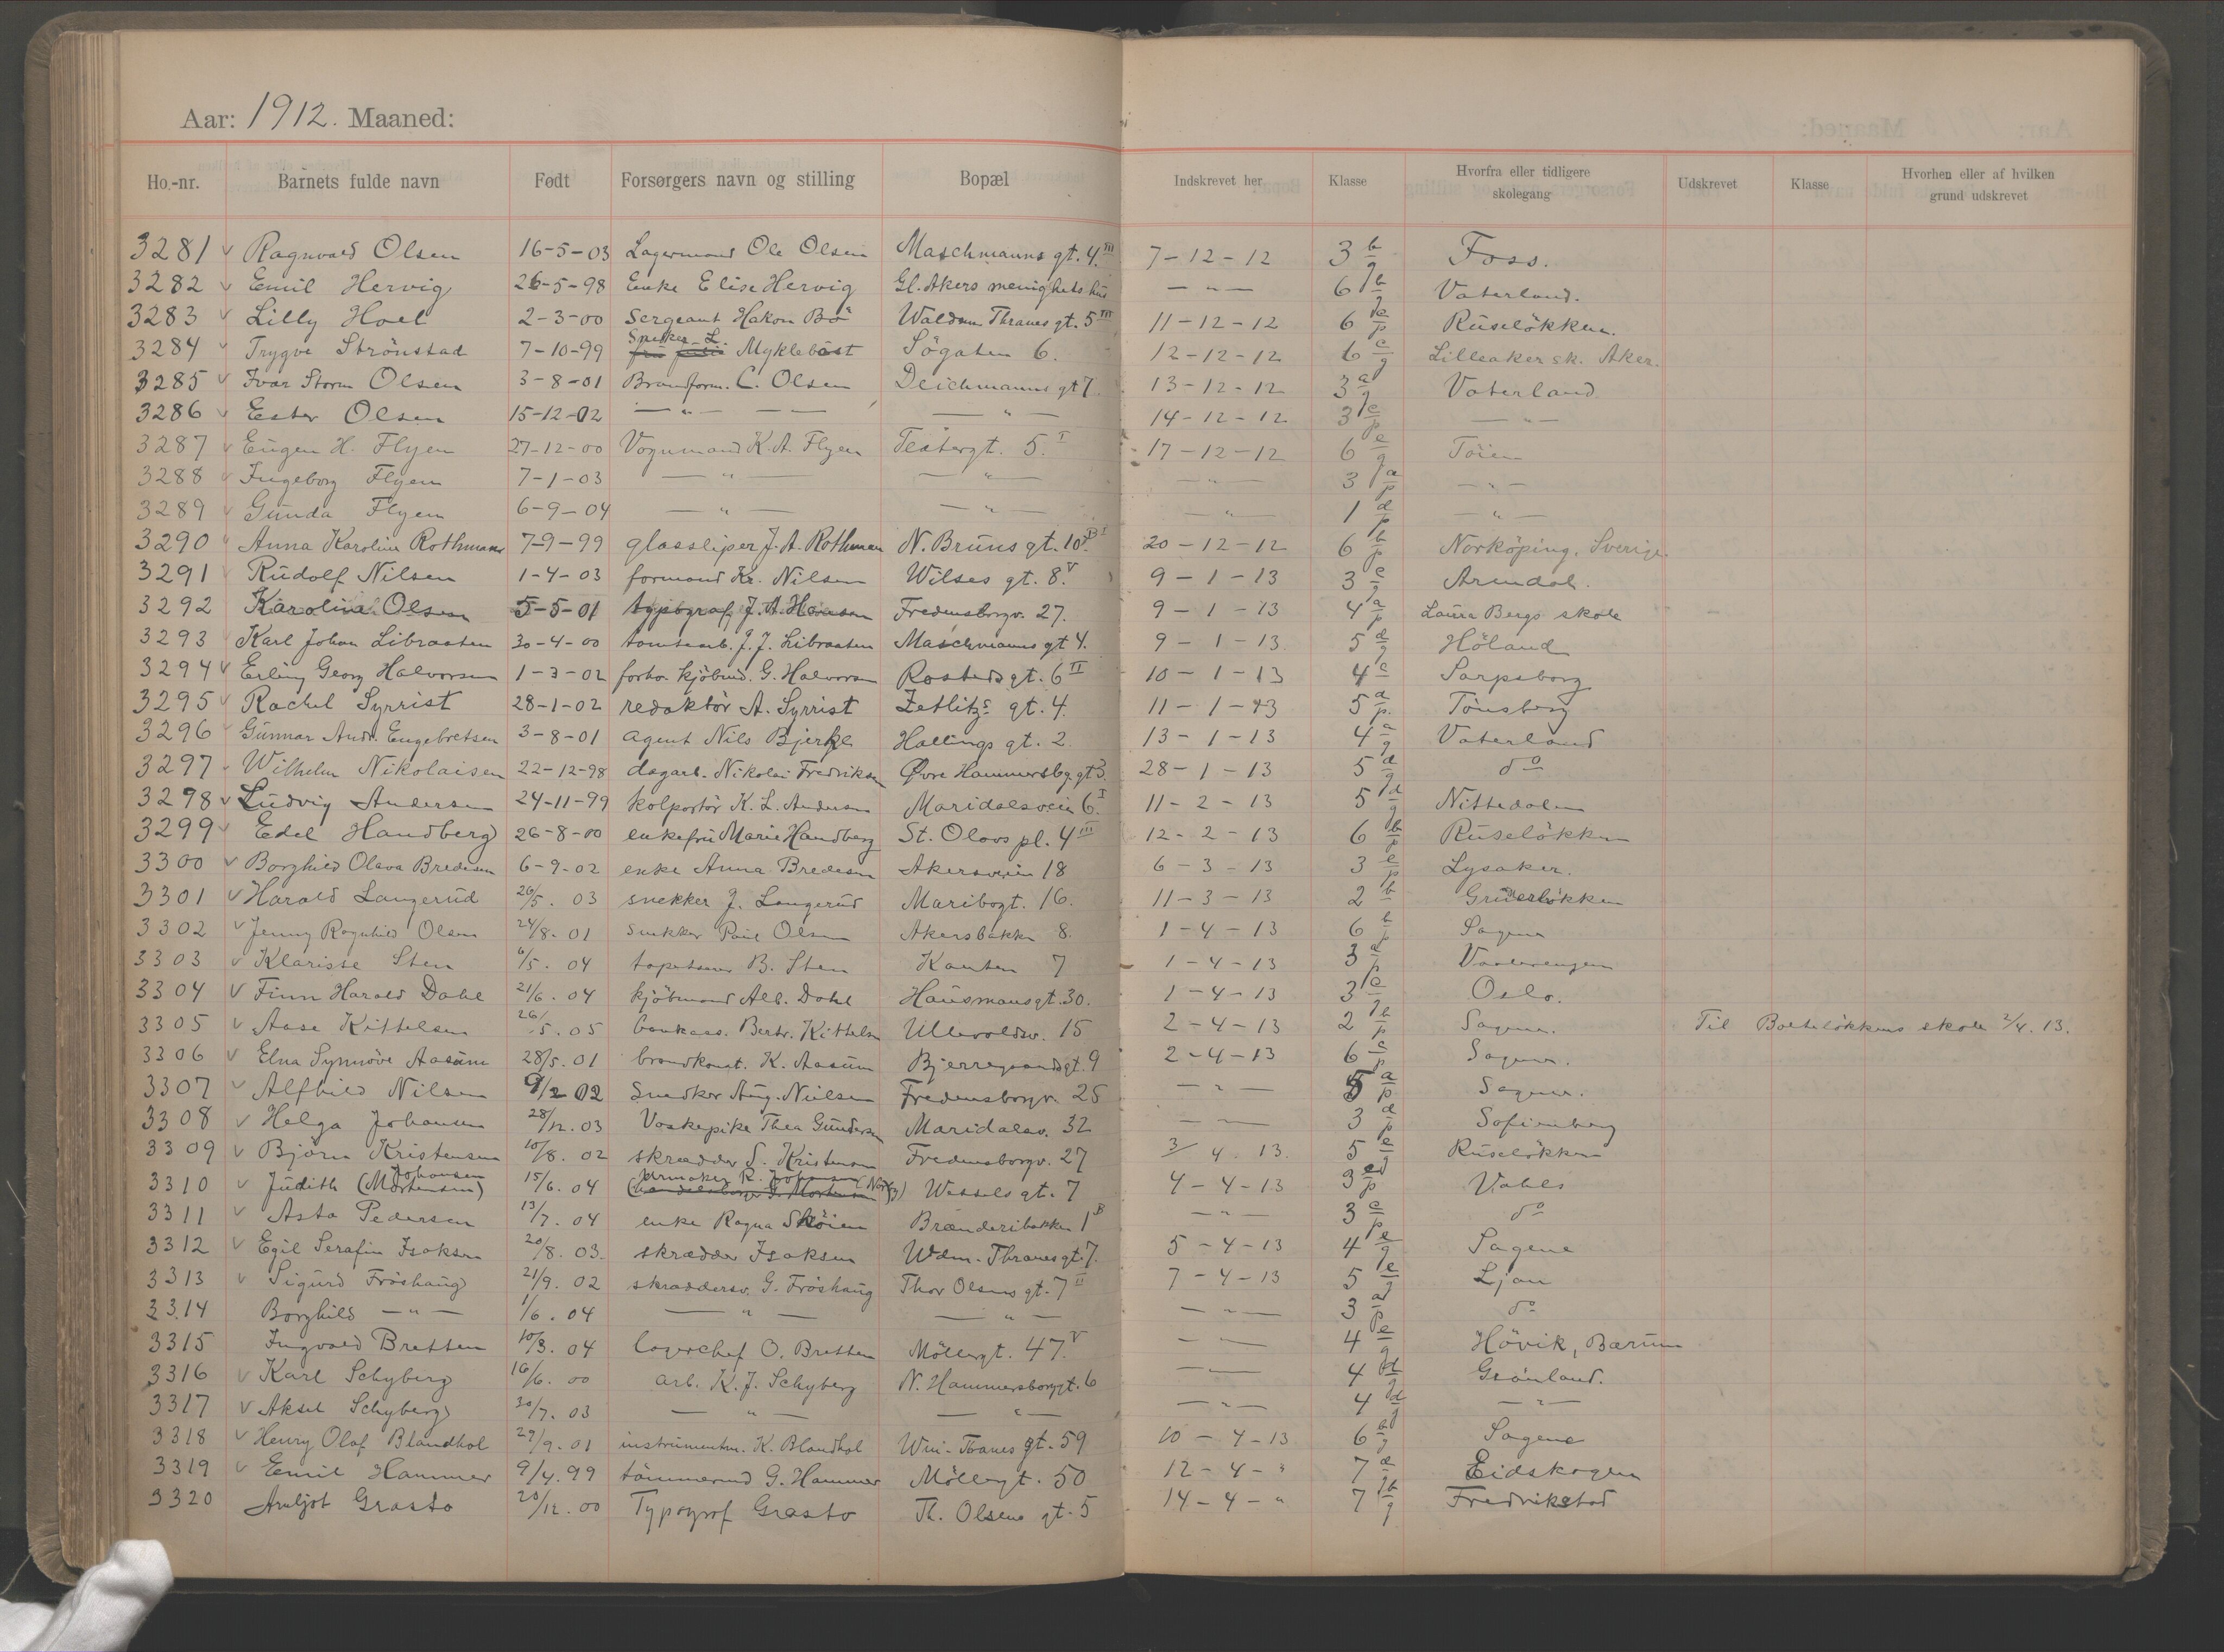 Aar: 1912. Maaned:
Ho.-nr. Barnets fulde navn Født Forsørgers navn og stilling Bopæl Indskrevet her Klasse Hvorfra eller tidligere skolegang Udskrevet Klasse Hvorhen eller af hvilken grund udskrevet
3281 v Ragnvald Olsen 16-5-03 Lagermand Ole Olsen Maschmanns gt. 4 III 7-12-12 3 b/g Foss.
3282 v Emil Hervig 26-5-98 Enke Elise Hervig Gl. Akers menighets hus — " — 6 b/g Vaterland.
3283 v Lilly Hoel 2-3-00 Sergeant Hakon Bö Waldem Thranes gt. 5 III 11-12-12 6 e/p Ruselökken.
3284 v Trygve Strönstad 7-10-99 Snekker L. Myklebost Sögaten 6. 12-12-12 6 c/g Lilleaker sk. Aker.
3285 v Ivar Storm Olsen 3-8-01 Brandform. C. Olsen Deichmanns gt 7. 13-12-12 3 a/g Vaterland
3286 v Ester Olsen 15-12-02 — " — — " — 14-12-12 3 c/p — " —
3287 v Eugen H. Flyen 27-12-00 Vognmand K. A. Flyen Teatergt. 5. I 17-12-12 6 e/g Töien
3288 v Ingeborg Flyen 7-1-03 — " — — " — — " — 3 a/p — " —
3289 v Gunda Flyen 6-9-04 — " — — " — — " — 1 d/p — " —
3290 v Anna Karoline Rothmann 7-9-99 glassliper J. A. Rothman N. Bruns gt. 10 B I 20-12-12 6 b/p Norköping, Sverige.
3291 v Rudolf Nilsen 1-4-03 formand Kr. Nilsen Wilses gt. 8. V 9-1-13 3 c/g Arendal.
3292 v Karoline Olsen 5-5-01 typograf J. A. Hansen Fredensborgv. 27. 9-1-13 4 a/p Laura Bergs skole
3293 v Karl Johan Libraaten 30-4-00 tomtearb. J. J. Libraaten Maschmanns gt 4. 9-1-13. 5 d/g Höland
3294 v Erling Georg Halvorsen 1-3-02 forhv. kjöbmd. G. Halvorsen Rosteds gt. 6 II 10-1-13 4 c/g Sarpsborg
3295 v Rachel Syrrist 28-1-02 redaktör A. Syrrist Zetlitzs gt. 4. 11-1-13 5 a/p. Tönsberg
3296 v Gunnar Andr. Engebretsen 3-8-01 agent Nils Bjerke Hallings gt. 2. 13-1-13 4 a/g Vaterland
3297 Wilhelm Nikolaisen 22-12-98 dagarb. Nikolai Fredriksen Øvre Hammersbg. gt 3. 28-1-13 5 d/g do
3298 v Ludvig Andersen 24-11-99 kolportör K. L. Andersen Maridalsveien 6. I 11-2-13 5 d/g Nittedalen
3299 v Edel Handberg 26-8-00 enkefru Marie Handberg St. Olavs pl. 4 III 12-2-13 6 b/p Ruselökken
3300 v Borghild Olava Bredesen 6-9-02 enke Anna Bredesen Akersveien 18 6-3-13 3 e/p Lysaker.
3301 v Harald Langerud 26/5. 03 snekker J. Langerud Maribogt. 16. 11-3-13 2 b Grünerlökken
3302 v Jenny Ragnhild Olsen 24/8. 01 snekker Paul Olsen Akersbakken 8. 1-4-13 6 b/p Sagene
3303 v Klarisse Sten 6/5. 04 tapetserer B. Sten Kanten 7 1-4-13 3 a/p Vaalerengen
3304 v Finn Harald Dahl 21/6. 04 kjöbmand Alb. Dahl Hausmansgt. 30. 1-4-13 3 c/g Oslo.
3305 v Aase Kittelsen 26/5. 05 bankass. Bertr. Kittelsen Ullevoldsv. 15 2-4-13 2 b/p Sagene. Til Bolteløkkens skole 2/4. 13.
3306 v Elna Synnöve Aasum 28/5. 01 brandkonst. K. Aasum Bjerregaardsgt. 9 2-4-13 6 c/p Sagene.
3307 v Alfhild Nilsen 9/2 02 Snedker Aug. Nielsen Fredensborgv. 25 — " — 5 a/p Sagene.
3308 v Helga Johansen 28/12. 03 Vaskepike Thea Gundersen Maridalsv. 32 — " — 3 d/p Sofienberg
3309 v Björn Kristensen 10/8. 02 skrædder S. Kristensen Fredensborgv. 27 3/4. 13. 5 e/g Ruselökken
3310 v Judith (Mortensen) Johansen 15/6. 04 Urmaker R. Johansen (handelsborger G. Mortensen) Wessels gt. 7 4-4-13 3 e/p Vahls
3311 v Asta Pedersen 13/7. 04 enke Ragna Sköien Brænderibakken 1 B — " — 3 c/p do
3312 v Egil Serafin Isaksen 20/8. 03. skrædder Isaksen Wdm. Thranes gt. 7. 5-4-13 4 e/g Sagene
3313 v Sigurd Fröshaug 21/9. 02 skræddersv. G. Fröshaug Thor Olsens gt. 7 II 7-4-13 5 e/g Ljan
3314 Borghild — " — 1/6. 04 — " — — " — — " — 3 a/p do
3315 Ingvald Bretten 10/3. 04 lagerchef O. Bretten Möllergt. 47. V — " — 4 e/g Hövik, Bærum
3316 v Karl Schyberg 16/6. 00 arb. K. J. Schyberg N. Hammersborggt. 6 — " — 4 d/g Grönland.
3317 v Aksel Schyberg 30/7. 03 — " — — " — — " — 4 d/g — " —
3318 v Henry Olaf Blandhol 29/9. 01 instrumentm. K. Blandhol Wm. Thranes gt. 59 10-4-13 6 a/g Sagene
3319 v Emil Hammer 9/4. 99 tömmermd G. Hammer Möllergt. 50 12-4-" 7 a/g Eidskogen
3320 Arnljot Grasto 20/12. 00 Typograf Grasto Th. Olsens gt. 5 14-4-" 7 b/g Fredrikstad